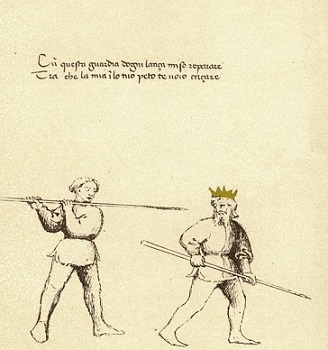 Cũ questa guardia dogni lança mi sò reparare
Tra che la mia ĩ lo tuo peto te voio